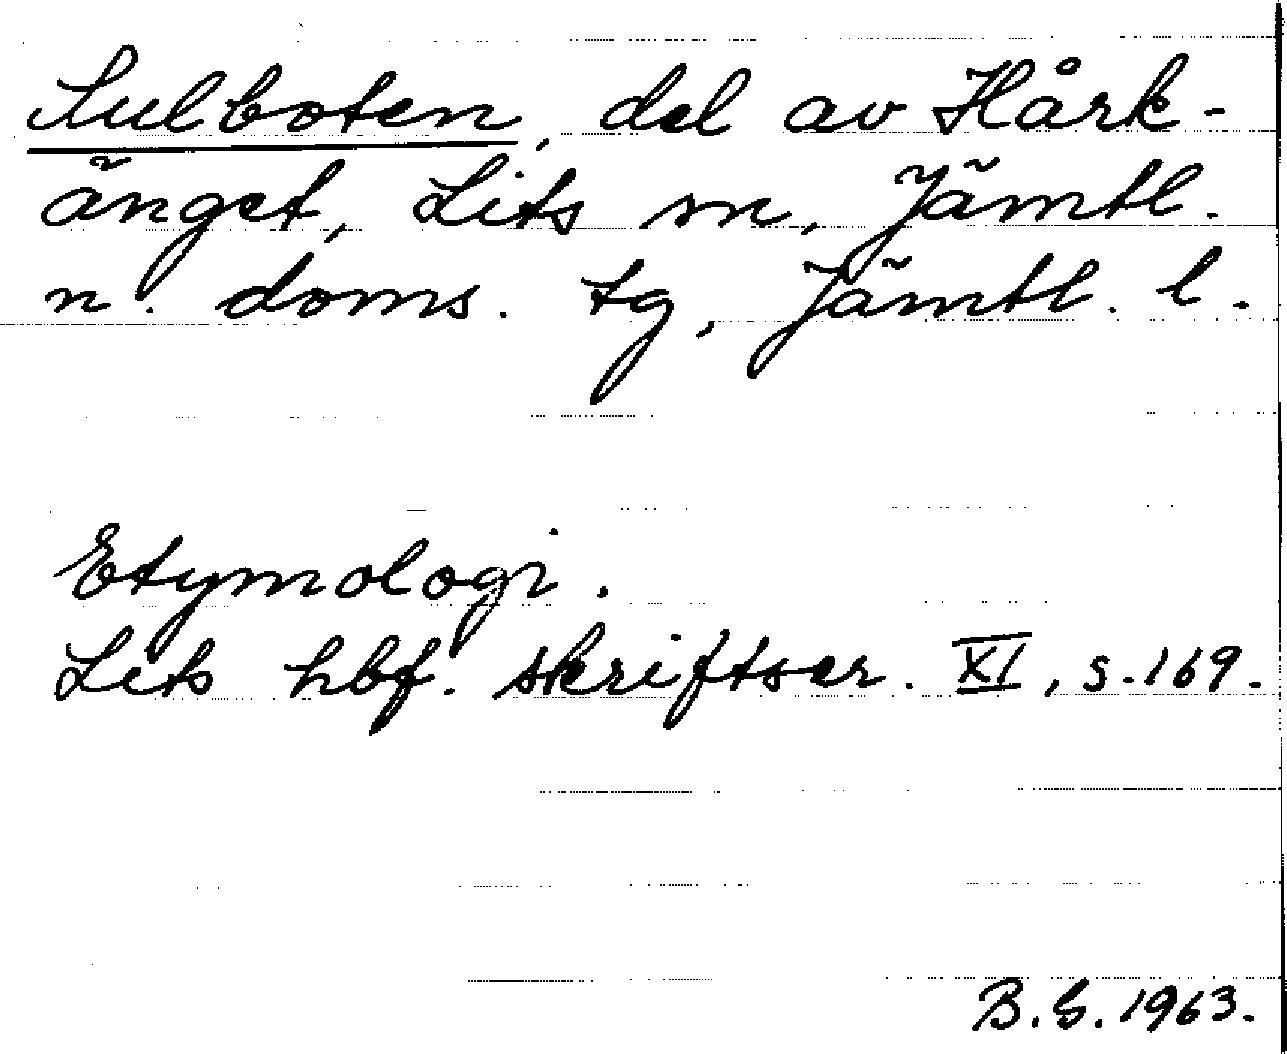 Sulboten, del av Hårk-
änget, Lits sn, Jämtl.
n. doms. tg, Jämtl. l.
Etymologi.
Lits hbf. skriftser. XI, s. 169.
B. G. 1963.